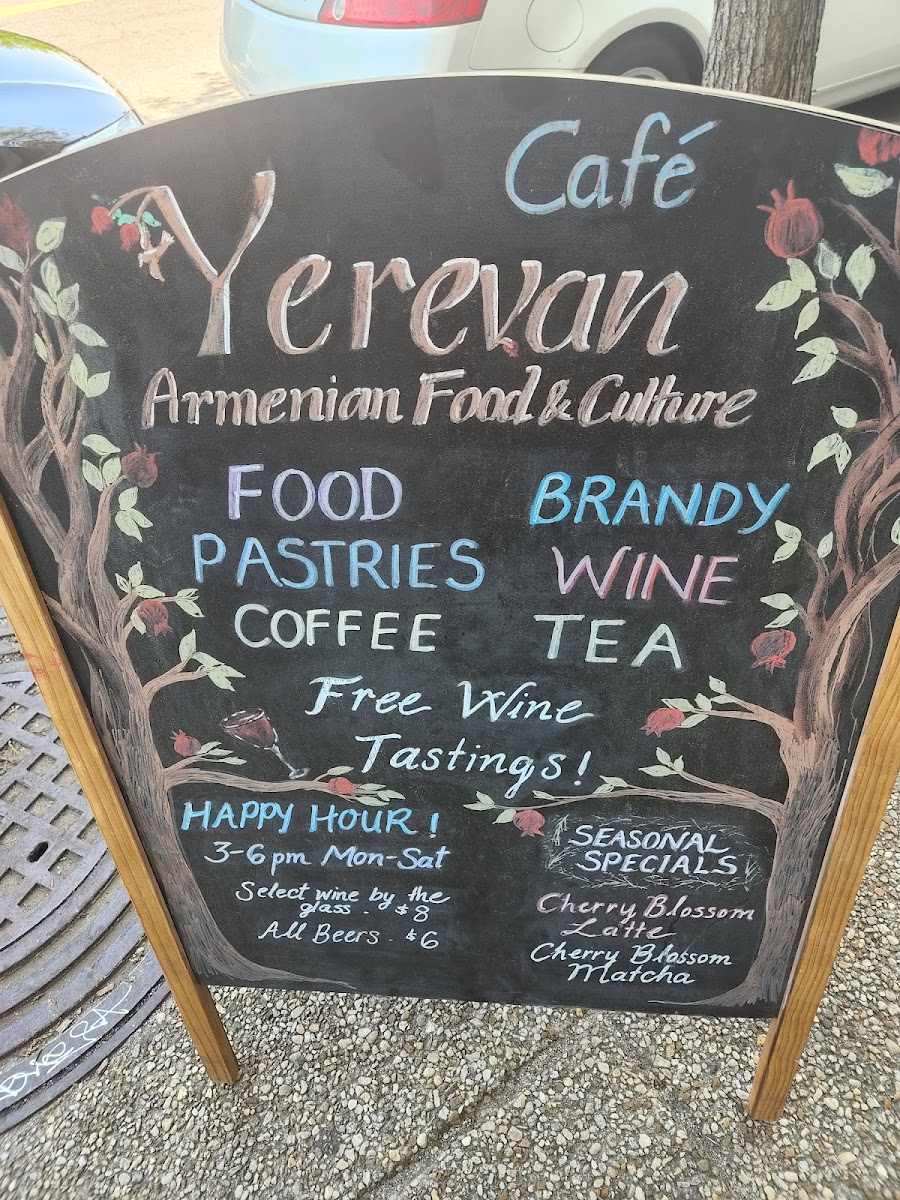 Café
Yerevan
Armenian Food & Culture
FOOD
PASTRIES
COFFEE
BRANDY
WINE
TEA
Free Wine
Tastings!
HAPPY HOUR!
3-6pm Mon-Sat
Select wine by the
glass. $8
All Beers. $6
SEASONAL
SPECIALS
Cherry Blossom
Latte
Cherry Blossom
Matcha